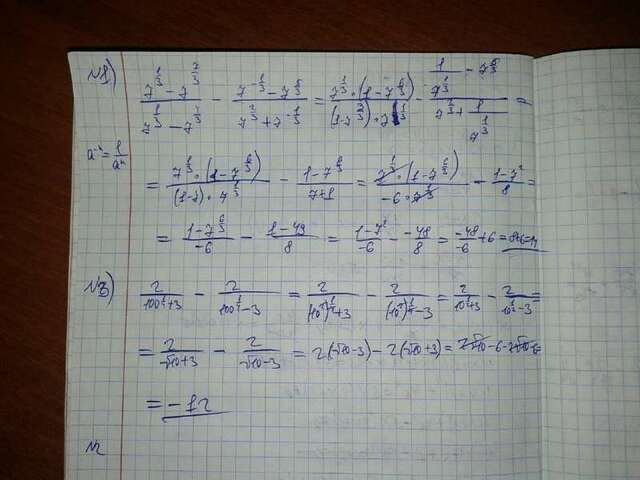 №1) \frac{7^{\frac{1}{3}} - 7^{\frac{7}{3}}}{7^{\frac{1}{3}} - 7^{\frac{4}{3}}} - \frac{7^{-\frac{1}{3}} - 7^{\frac{5}{3}}}{7^{\frac{2}{3}} + 7^{-\frac{1}{3}}} = \frac{7^{\frac{1}{3}} \cdot (1 - 7^{\frac{6}{3}})}{(1-7^{\frac{3}{3}}) \cdot 7^{\frac{1}{3}}} - \frac{\frac{1}{7^{\frac{1}{3}}} - 7^{\frac{5}{3}}}{7^{\frac{2}{3}} + \frac{1}{7^{\frac{1}{3}}}} =
a^{-n} = \frac{1}{a^n}
= \frac{7^{\frac{1}{3}} \cdot (1 - 7^{\frac{6}{3}})}{(1-7) \cdot 7^{\frac{1}{3}}} - \frac{1 - 7^{\frac{6}{3}}}{7+1} = \frac{7^{\frac{1}{3}} \cdot (1 - 7^{\frac{6}{3}})}{-6 \cdot 7^{\frac{1}{3}}} - \frac{1-7^2}{8} =
= \frac{1 - 7^{\frac{6}{3}}}{-6} - \frac{1-49}{8} = \frac{1-7^2}{-6} - \frac{-48}{8} = \frac{-48}{-6} + 6 = 8+6=14
№3) \frac{2}{100^{\frac{1}{4}}+3} - \frac{2}{100^{\frac{1}{4}}-3} = \frac{2}{(10^2)^{\frac{1}{4}}+3} - \frac{2}{(10^2)^{\frac{1}{4}}-3} = \frac{2}{10^{\frac{1}{2}}+3} - \frac{2}{10^{\frac{1}{2}}-3} =
= \frac{2}{\sqrt{10}+3} - \frac{2}{\sqrt{10}-3} = 2(\sqrt{10}-3) - 2(\sqrt{10}+3) = 2\sqrt{10}-6-2\sqrt{10}-6
= -12
№2